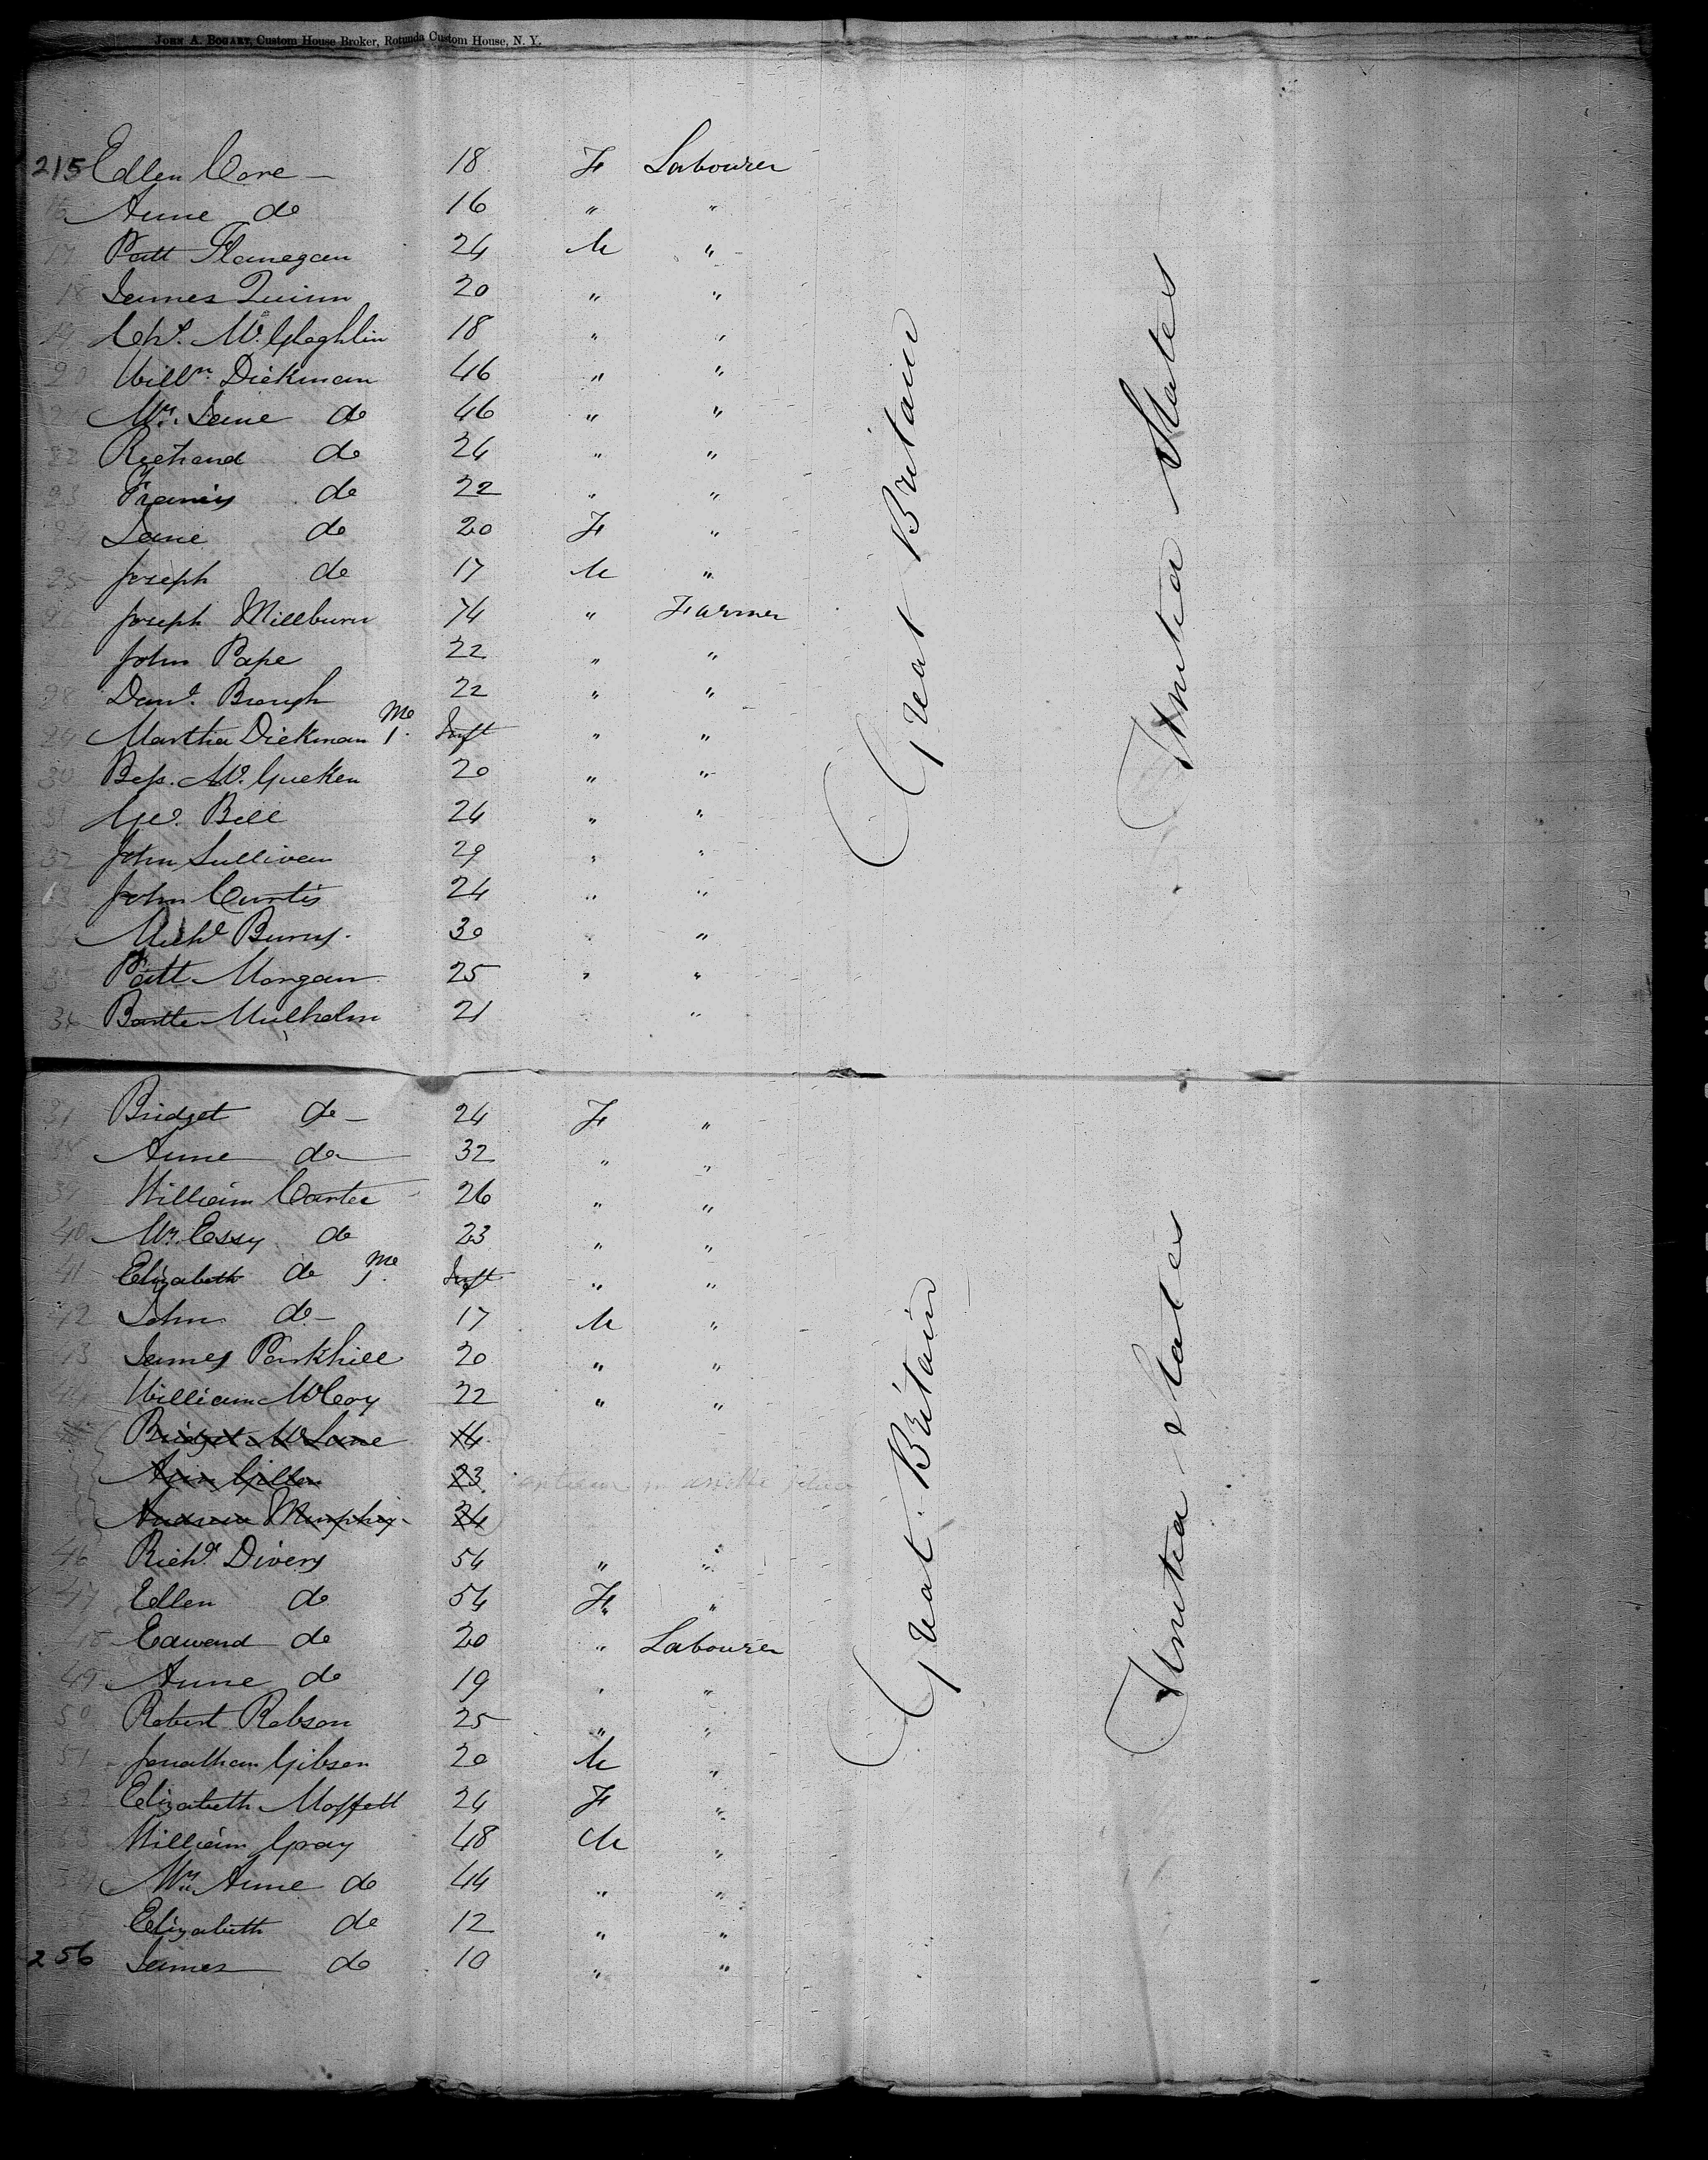 JOHN A. BOGART, Custom House Broker, Rotunda Custom House, N. Y.
215 Ellen Core — 18 F Labourer
16 Anne do 16 " "
17 Patt Flanegan 24 M "
18 James Quinn 20 " "
19 Chs. McGloghlin 18 " "
20 Willm. Dickman 46 " "
21 Mrs. Jane do 46 " "
22 Richard do 24 " "
23 Francis do 22 " "
24 Jane do 20 F "
25 Joseph do 17 M "
26 Joseph Millburn 74 " Farmer
John Pape 22 " "
28 Danl. Brough 22 " "
29 Martha Dickman 1 Mo Inft " "
30 Bess. Mc. Gucken 20 " "
31 Geo. Bell 24 " "
32 John Sullivan 29 " "
33 John Curtis 24 " "
34 Michl Burns. 30 " "
35 Patt Morgan 25 " "
36 Bartle Mulholm 21 "
37 Bridget do — 24 F "
38 Anne do — 32 " "
39 William Carter 26 " "
40 Mrs. Essy do 23 " "
41 Elizabeth do 1 Mo Inft " "
42 John do — 17 M "
43 James Parkhill 20 " "
44 William McCoy 22 " "
Bridget McLane 14
Ann Gillon 23
Andrew Murphy 24
46 Richd. Divers 54 " "
47 Ellen do 54 F "
48 Edward do 20 " Labourer
49 Anne do 19 " "
50 Robert Robson 25 " "
51 Jonathan Gibson 20 M "
52 Elizabeth Moffett 24 F "
53 William Gray 48 M "
54 Mrs. Anne do 44 " "
55 Elizabeth do 12 " "
256 James do 10 " "
Great Britain
United States
Great Britain
United States